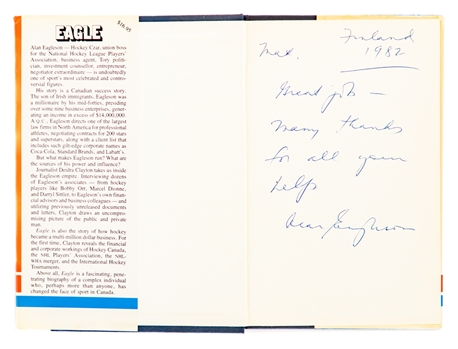 EAGLE
$16.95
Alan Eagleson — Hockey Czar, union boss
for the National Hockey League Players'
Association, business agent, Tory politi-
cian, investment counsellor, entrepreneur,
negotiator extraordinaire — is undoubtedly
one of sport's most celebrated and contro-
versial figures.
His story is a Canadian success story.
The son of Irish immigrants, Eagleson was
a millionaire by his mid-forties, presiding
over some nine business enterprises, gener-
ating an income in excess of $14,000,000.
A Q.C., Eagleson directs one of the largest
law firms in North America for professional
athletes, negotiating contracts for 200 stars
and superstars, along with a client list that
includes such gilt-edge corporate names as
Coca-Cola, Standard Brands, and Labatt's.
But what makes Eagleson run? What are
the sources of his power and influence?
Journalist Deidra Clayton takes us inside
the Eagleson empire. Interviewing dozens
of Eagleson's associates — from hockey
players like Bobby Orr, Marcel Dionne,
and Darryl Sittler, to Eagleson's own finan-
cial advisors and business colleagues — and
utilizing previously unreleased documents
and letters, Clayton draws an uncompro-
mising picture of the public and private
man.
Eagle is also the story of how hockey
became a multi-million dollar business. For
the first time, Clayton reveals the financial
and corporate workings of Hockey Canada,
the NHL Players' Association, the NHL-
WHA merger, and the International Hockey
Tournaments.
Above all, Eagle is a fascinating, pene-
trating biography of a complex individual
who, perhaps more than anyone, has
changed the face of sport in Canada.
Finland
1982
Max,
Great job —
Many thanks
for all your
help
Alan Eagleson